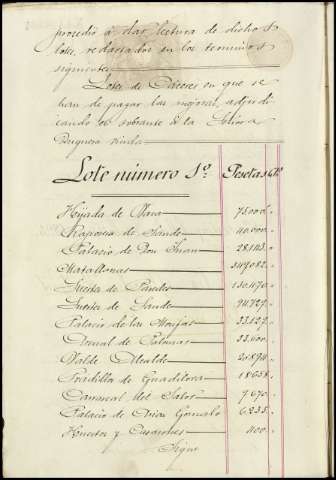 procedió á dar lectura de dichos
lotes, redactados en los terminos
siguientes
Lotes de Cáceres en que se
han de pagar las mejoras, adjudi
cando el sobrante á la Señora
viuda
Lote número 1º. Pesetas Cts
Hijada de Vaca 75000.
de Sande 40.000.
Palacio de Don Juan 28.143.
Matallanas 349.082.
Suerte de Paredes 130.470.
Suertes de Sande 94.727.
Palacio de las Monjas 33.127.
de Palomas 33.000.
Valde Alcalde
Pradillo de Guadiloba 18.658.
del Salor 7.670.
Palacio de Arias Gonzalo 6.235.
Huertos y Casarones 400.
Sigue